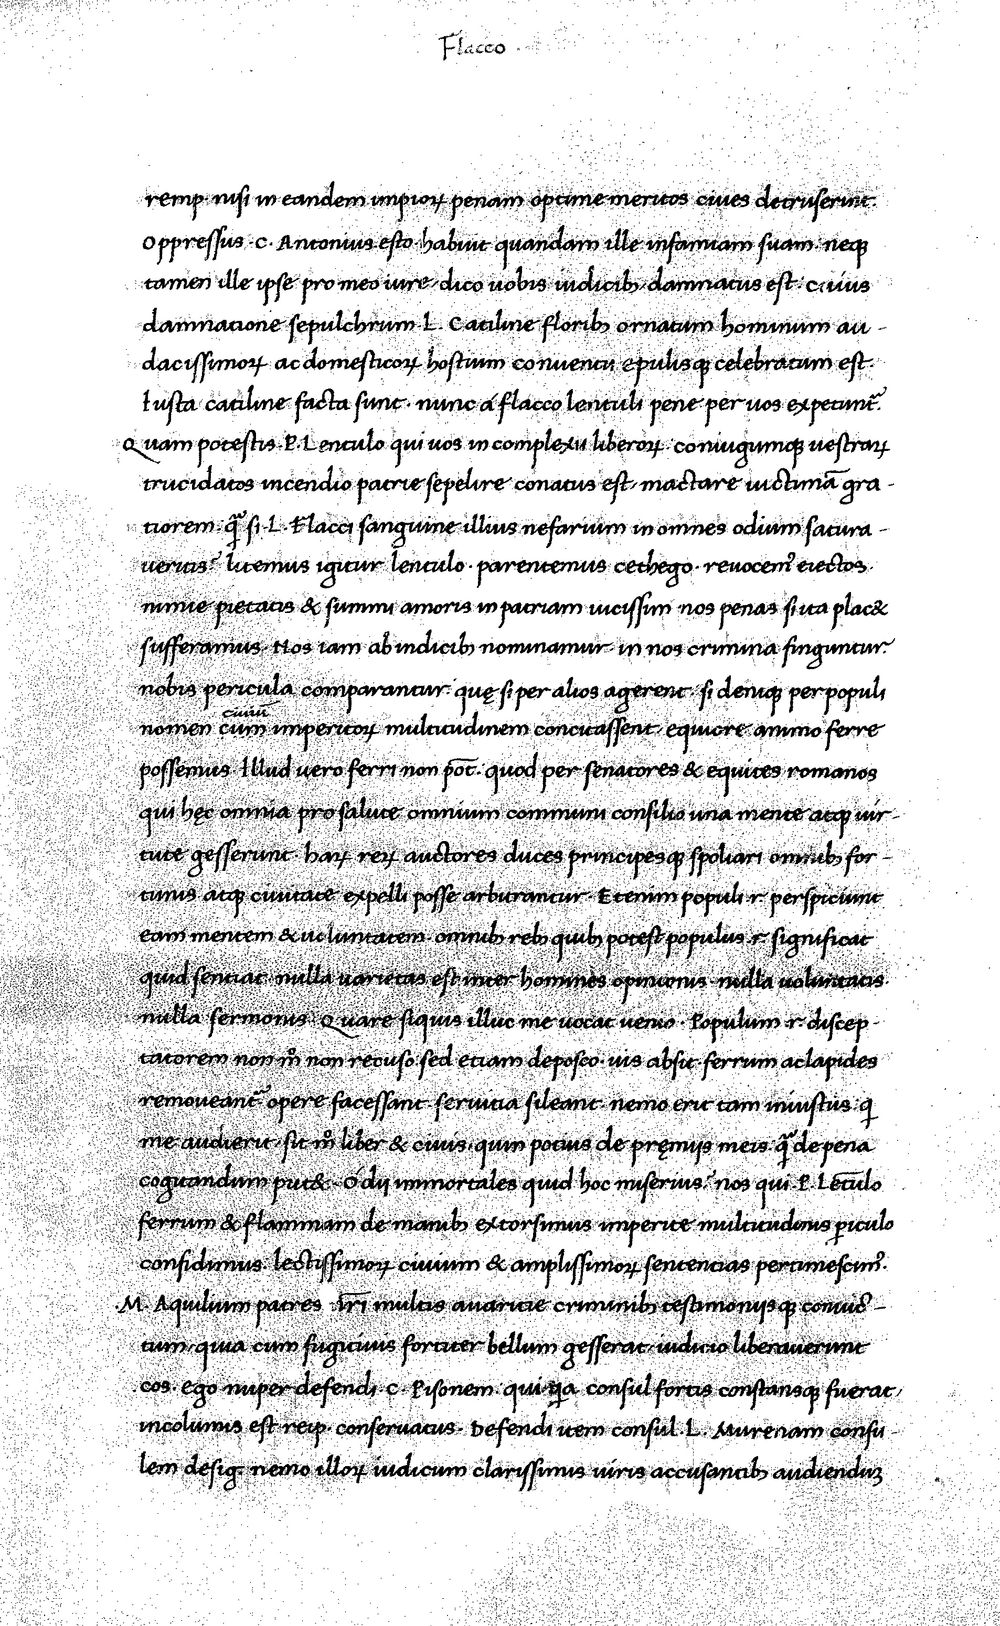 Flacco
remp. nisi in eandem impioꝝ penam optime meritos ciues detruserint.
Oppressus C. Antonius esto. habuit quandam ille infamiam suam. neqꝫ
tamen ille ipse pro meo iure dico uobis iudicibꝫ damnatus est. cuius
damnatione sepulchrum L. Catiline floribꝫ ornatum hominum au-
dacissimoꝝ ac domesticoꝝ hostium conuentu epulisqꝫ celebratum est.
Iusta catiline facta sunt. nunc a flacco lentuli pene per uos expetunt᷑.
Quam potestis P. Lentulo qui uos in complexu liberoꝝ coniugumqꝫ uestraꝝ
trucidatos incendio patrie sepelire conatus est, mactare uictimā gra-
tiorem. q̄ si L. Flacci sanguine illius nefarium in omnes odium satura-
ueritis? litemus igitur lentulo. parentemus cethego. reuocem᷒ eiectos.
nimie pietatis & summi amoris in patriam uicissim nos penas si ita plac&
sufferamus. Nos iam ab indicibꝫ nominamur. in nos crimina finguntur
nobis pericula comparantur. quę si per alios agerent. si deniqꝫ per populi
nomen cum ciuiū imperitoꝝ multitudinem concitassent. equiore animo ferre
possemus. Illud uero ferri non pōt. quod per senatores & equites romanos
qui hęc omnia pro salute omnium communi consilio una mente atqꝫ uir-
tute gesserunt. haꝝ reꝝ auctores duces principesqꝫ spoliari omnibꝫ for-
tunis atqꝫ ciuitate expelli posse arbitrantur. Etenim populi r. perspiciunt
eam mentem & uoluntatem. omnibꝫ rebꝫ quibꝫ potest populus .r. significat
quid sentiat. nulla uarietas est inter homines opinionis. nulla uoluntatis.
nulla sermonis. Quare siquis illuc me uocat uenio. Populum .r. discep-
tatorem non m̊ non recuso sed etiam deposco. uis absit. ferrum ac lapides
remoueant᷑ opere facessant. seruitia sileant. nemo erit tam iniustus q̇
me audierit. sit m̊ liber & ciuis. quin potius de pręmijs meis. q̄ de pena
cogitandum put&. O dij immortales quid hoc miserius? nos qui P. Lētulo
ferrum & flammam de manibꝫ extorsimus imperite multitudinis ꝑiculo
confidimus. lectissimoꝝ ciuium & amplissimoꝝ sententias pertimescim᷒.
M. Aquilium patres nr̄i multis auaritie criminibꝫ testimonijsqꝫ conuic-
tum, quia cum fugitiuis fortiter bellum gesserat, iudicio liberauerunt
cos. ego nuper defendi C. Pisonem. qui qa consul fortis constansqꝫ fuerat,
incolumis est reip. conseruatus. Defendi item consul L. Murenam consu-
lem desig. nemo illoꝝ iudicum clarissimis uiris accusantibꝫ audienduꝫ